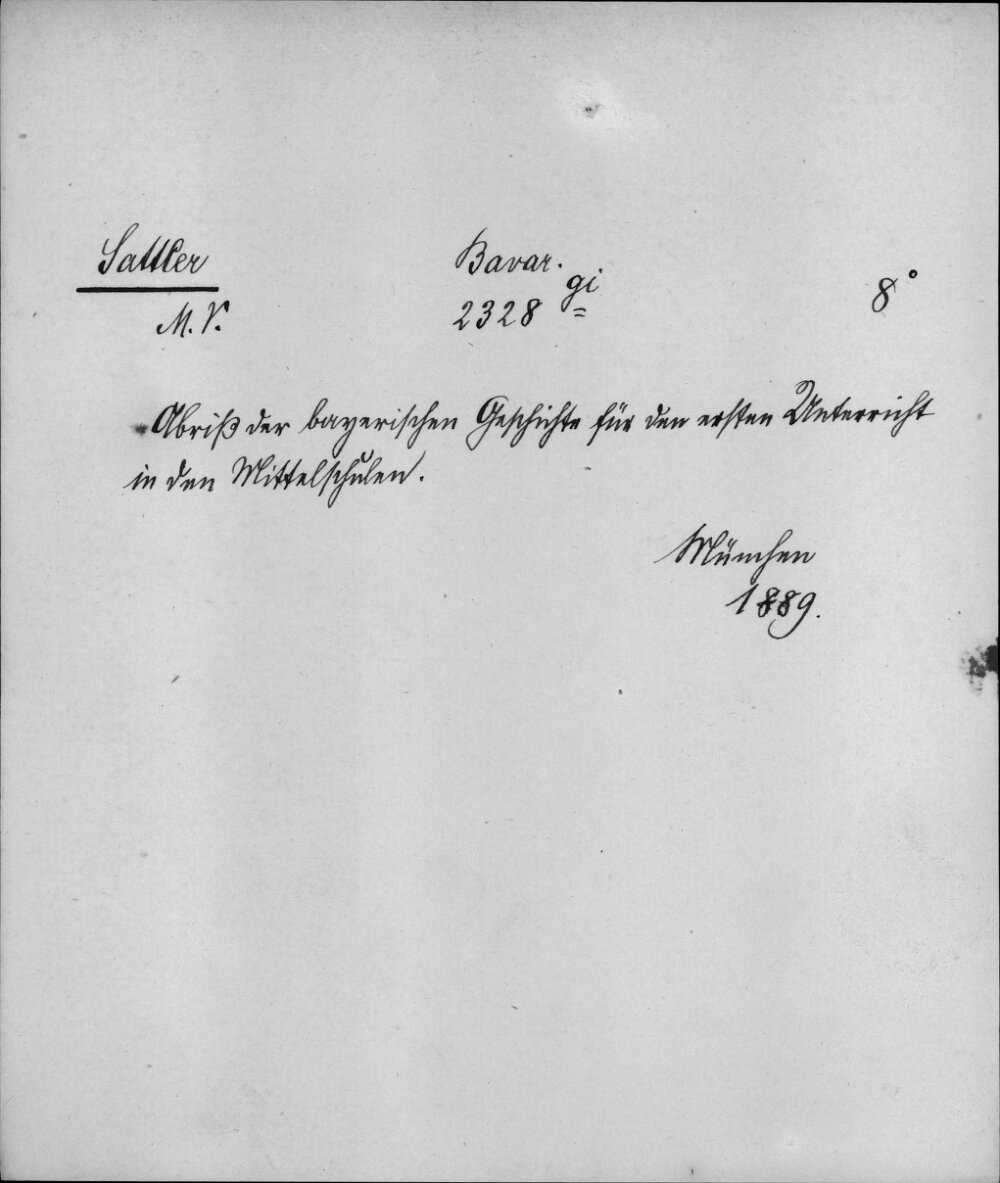 Sattler
M. V.
Bavar.
2328 gi
8°
Abriß der bayerischen Geschichte für den ersten Unterricht
in den Mittelschulen.
München
1889.